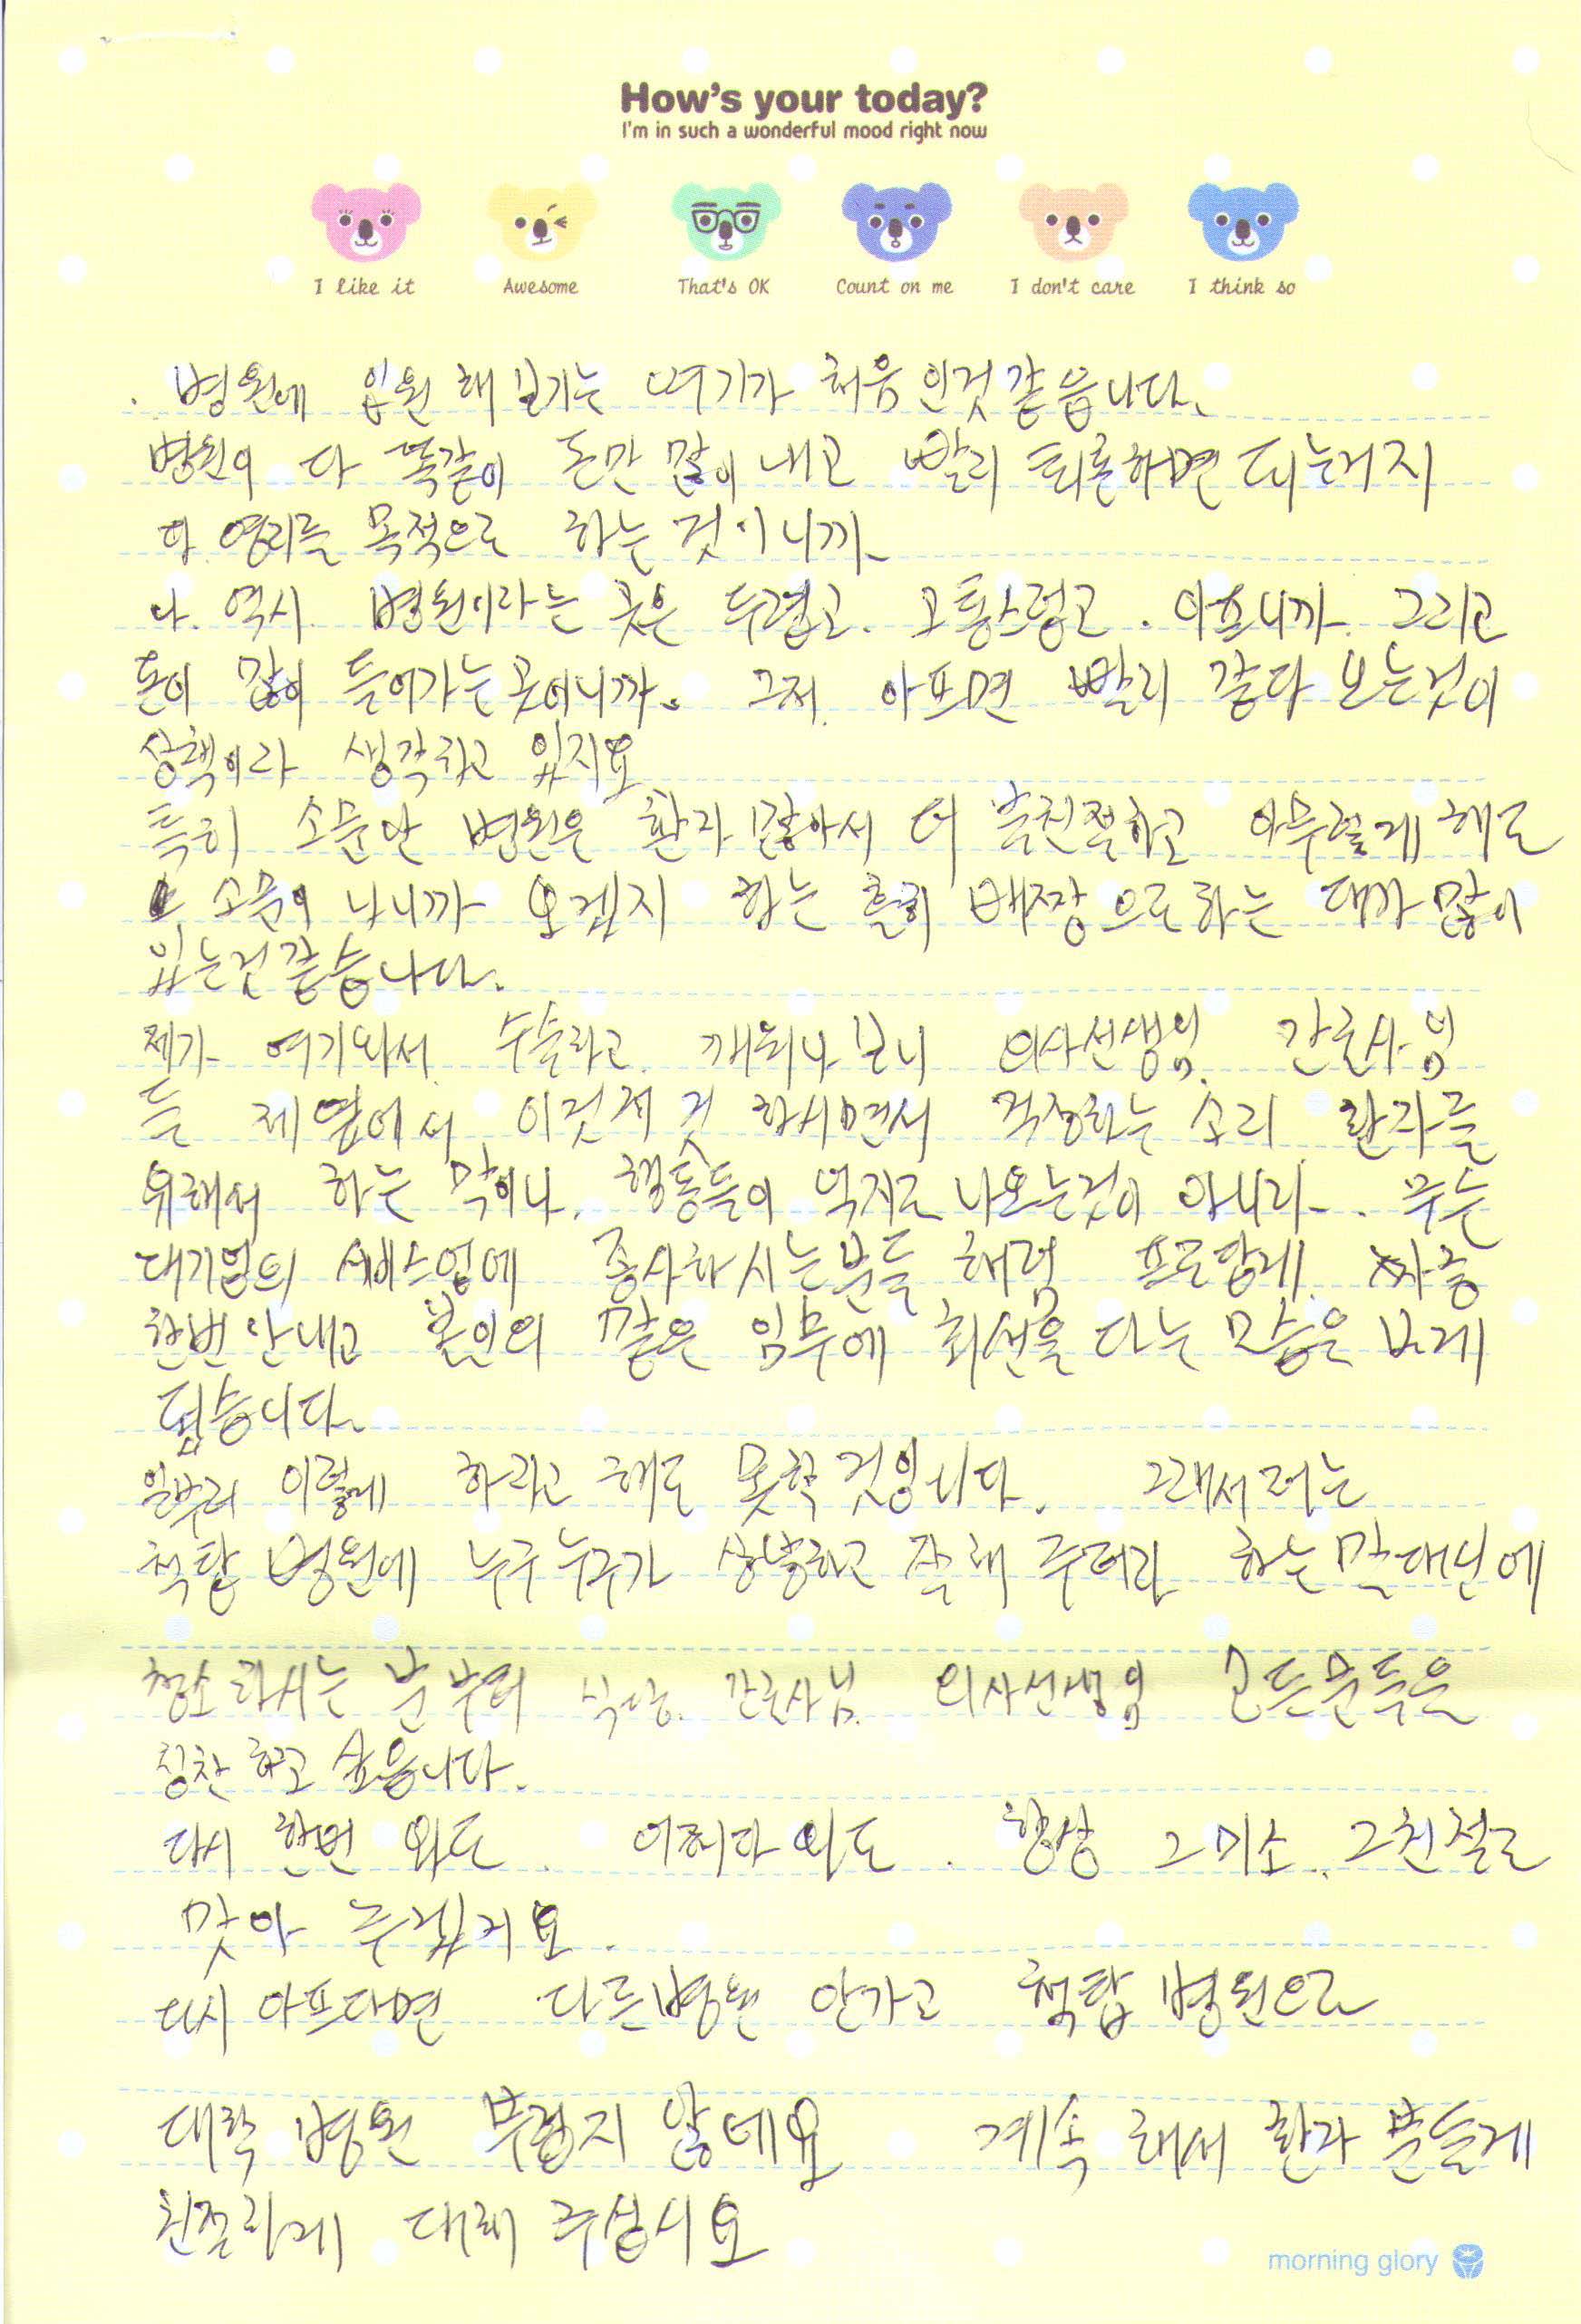 How's your today?
I'm in such a wonderful mood right now
I like it Awesome That's OK Count on me I don't care I think so
. 병원에 입원 해 보기는 여기가 처음 인것 같읍니다.
병원이 다 똑같이 돈만 많이 내고 빨리 퇴원하면 되는거지
다 영리를 목적으로 하는 것이니까
나 역시 병원이라는 곳은 두렵고. 고통스럽고. 아프니까 그리고
돈이 많이 들어가는 곳이니까. 그저 아프면 빨리 갔다 오는것이
상책이라 생각하고 있지요
특히 소문난 병원은 환자 많아서 더 불친절하고 아무렇게 해도
소문이 나니까 오겠지 하는 배짱으로 하는 데가 많이
있는것 같습니다.
제가 여기와서 수술하고 깨어나 보니 의사선생님. 간호사님
들 제 옆에서 이것저것 하시면서 걱정하는 소리 환자를
위해서 하는 말이나. 행동들이 억지로 나오는것이 아니라. 무슨
대기업의 서비스업에 종사하시는분들 처럼 프로답게 짜증
한번 안내고 본인의 맡은 임무에 최선을 다는 모습을 보게
됬습니다.
일부러 이렇게 하라고 해도 못할 것입니다. 그래서 저는
척탑 병원에 누구누구가 상냥하고 잘해 주더라 하는 말 대신에
청소 하시는 분 부터 식당. 간호사님. 의사선생님 모든분들을
칭찬 하고 싶읍니다.
다시 한번 와도. 어쩌다 와도. 항상 그 미소.. 그 친절로
맞아 주겠지요.
다시 아프다면 다른병원 안가고 척탑 병원으로
대학 병원 부럽지 않네요 계속 해서 환자 분들게
친절하게 대해 주십시요
morning glory